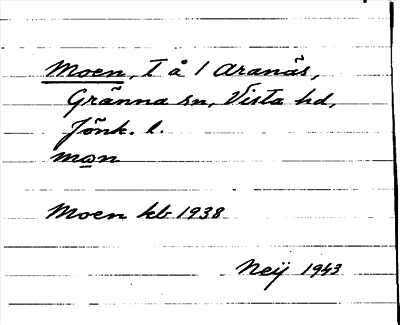 Moen, t å 1 Aranäs,
Gränna sn, Vista hd,
Jönk. l.
Moen kb 1938
Neij 1943